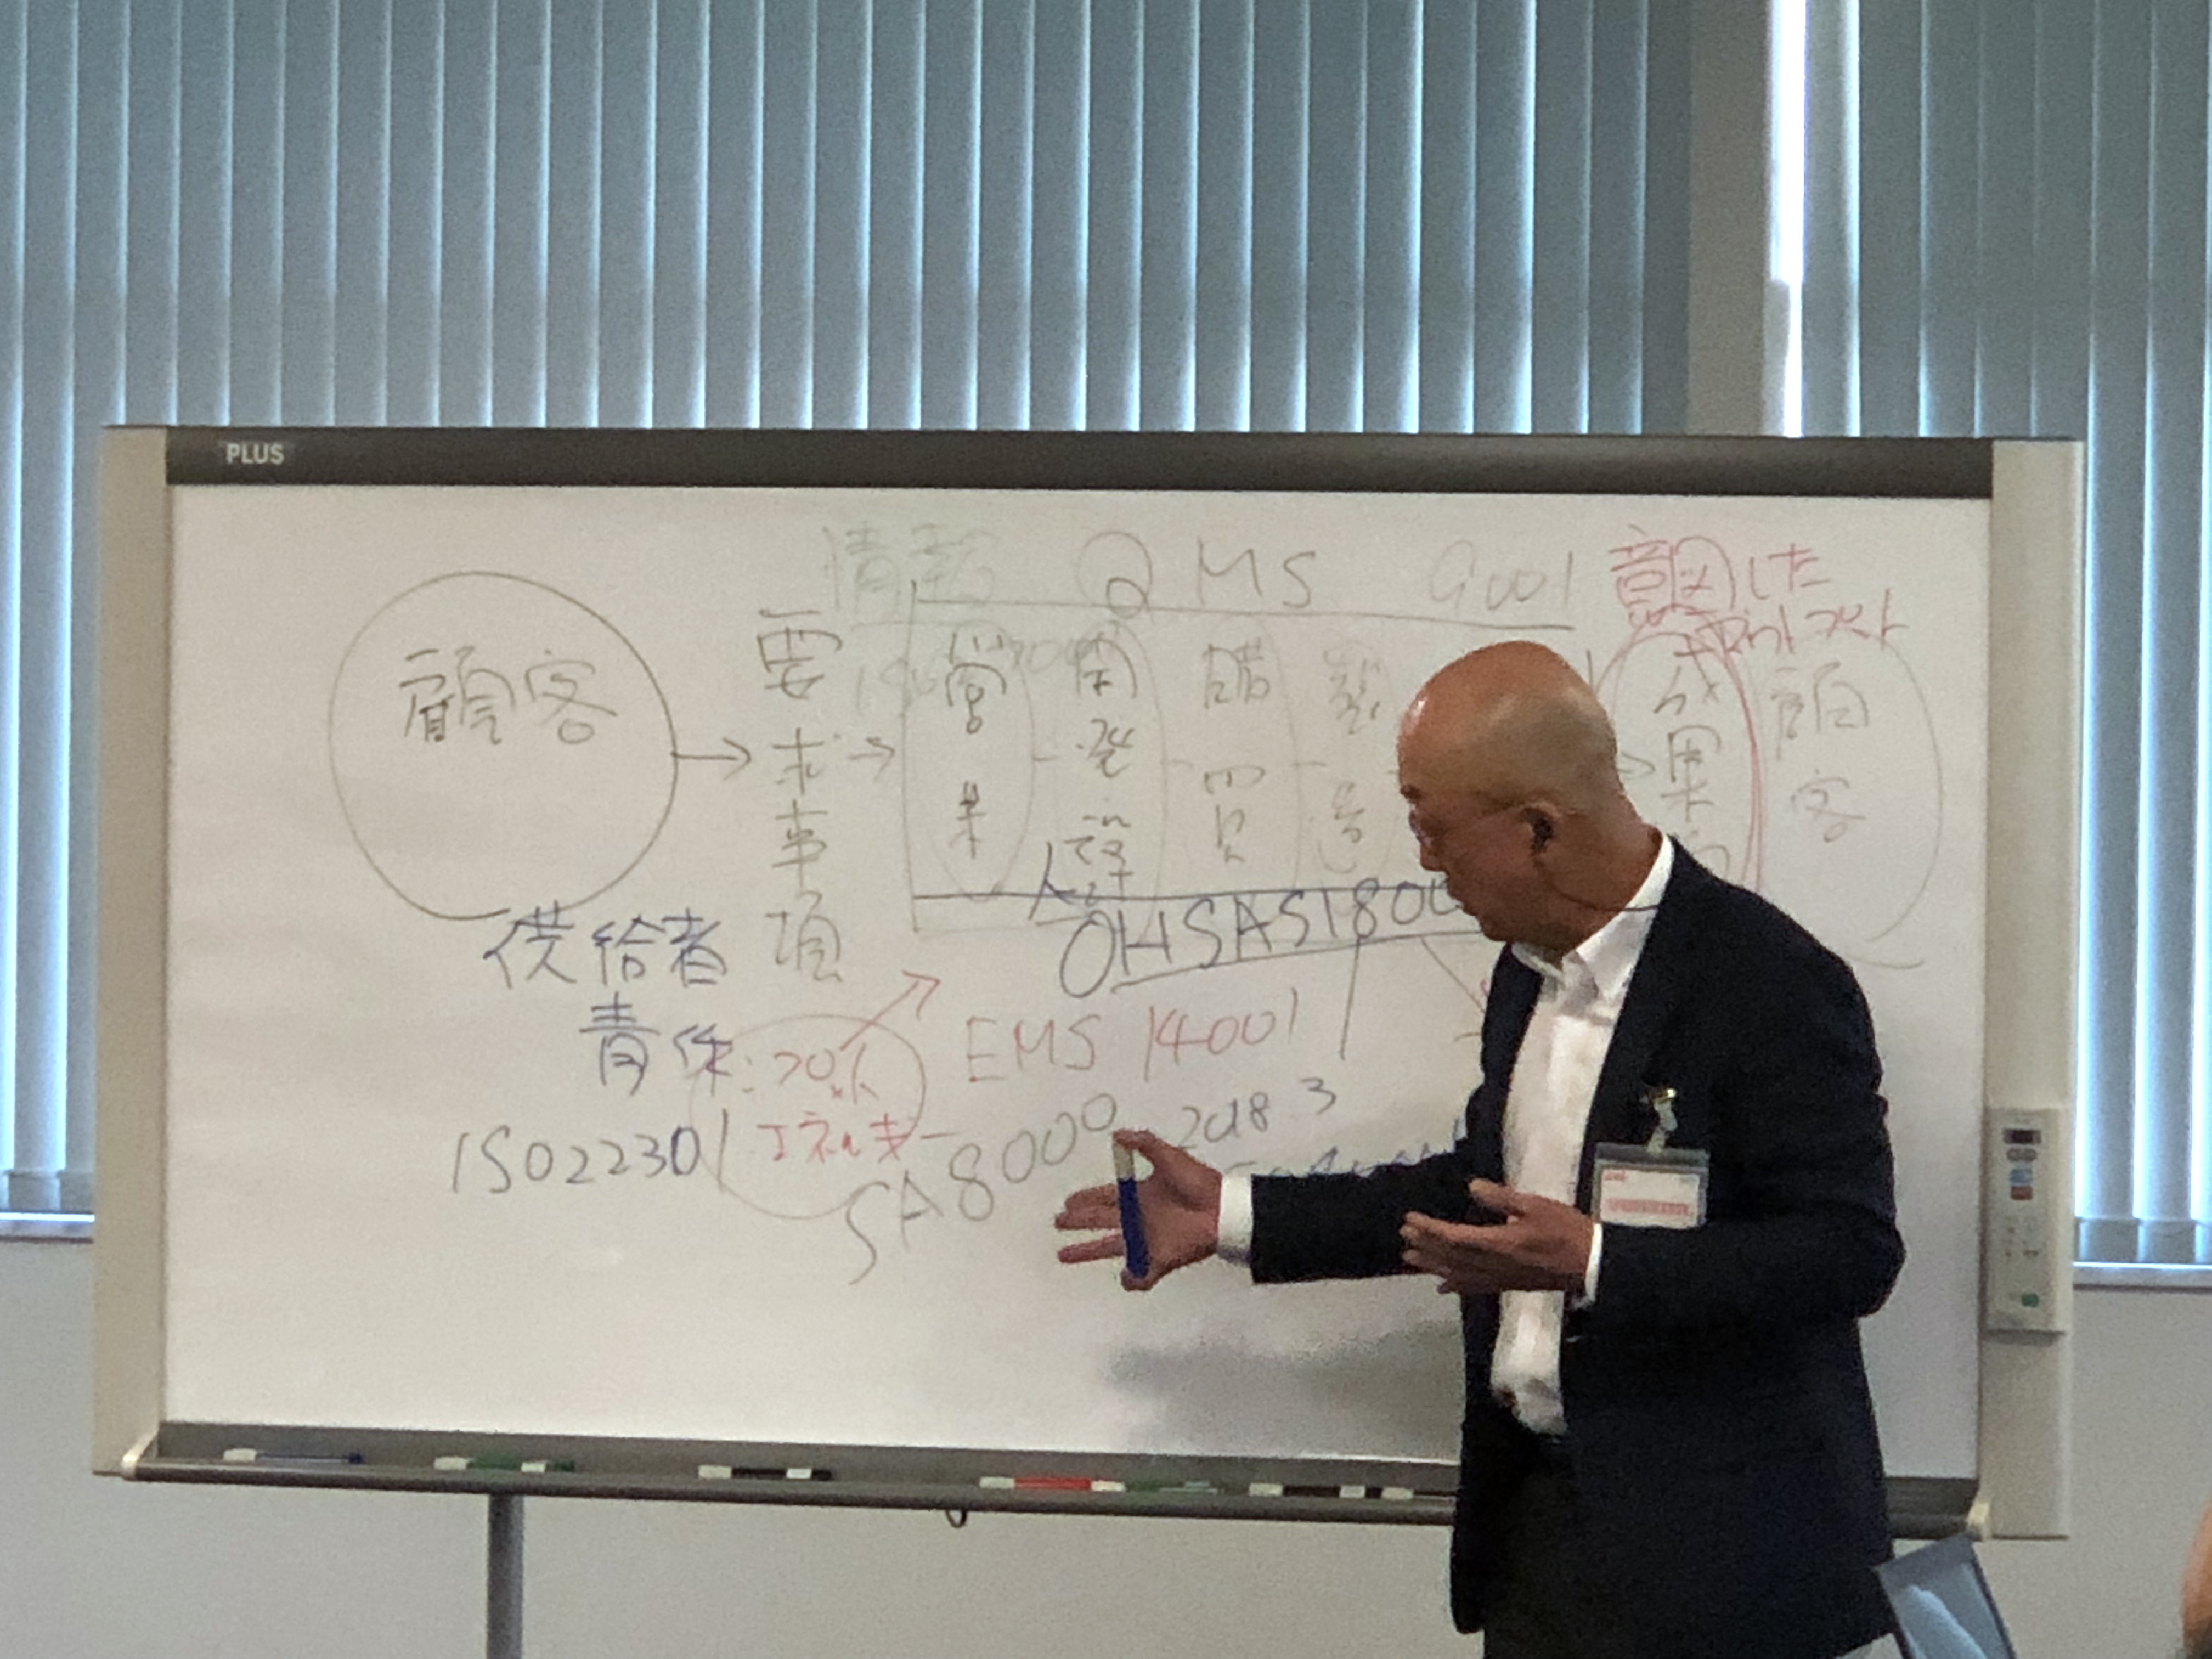 PLUS
情報 QMS 9001 意図した
アウトプット
顧客
要求事項
営業
開発設
購買
製造
成果
顧客
人
OHSAS1800
供給者
責任:
EMS 14001
2018 3
ISO22301
エネルギー
SA8000